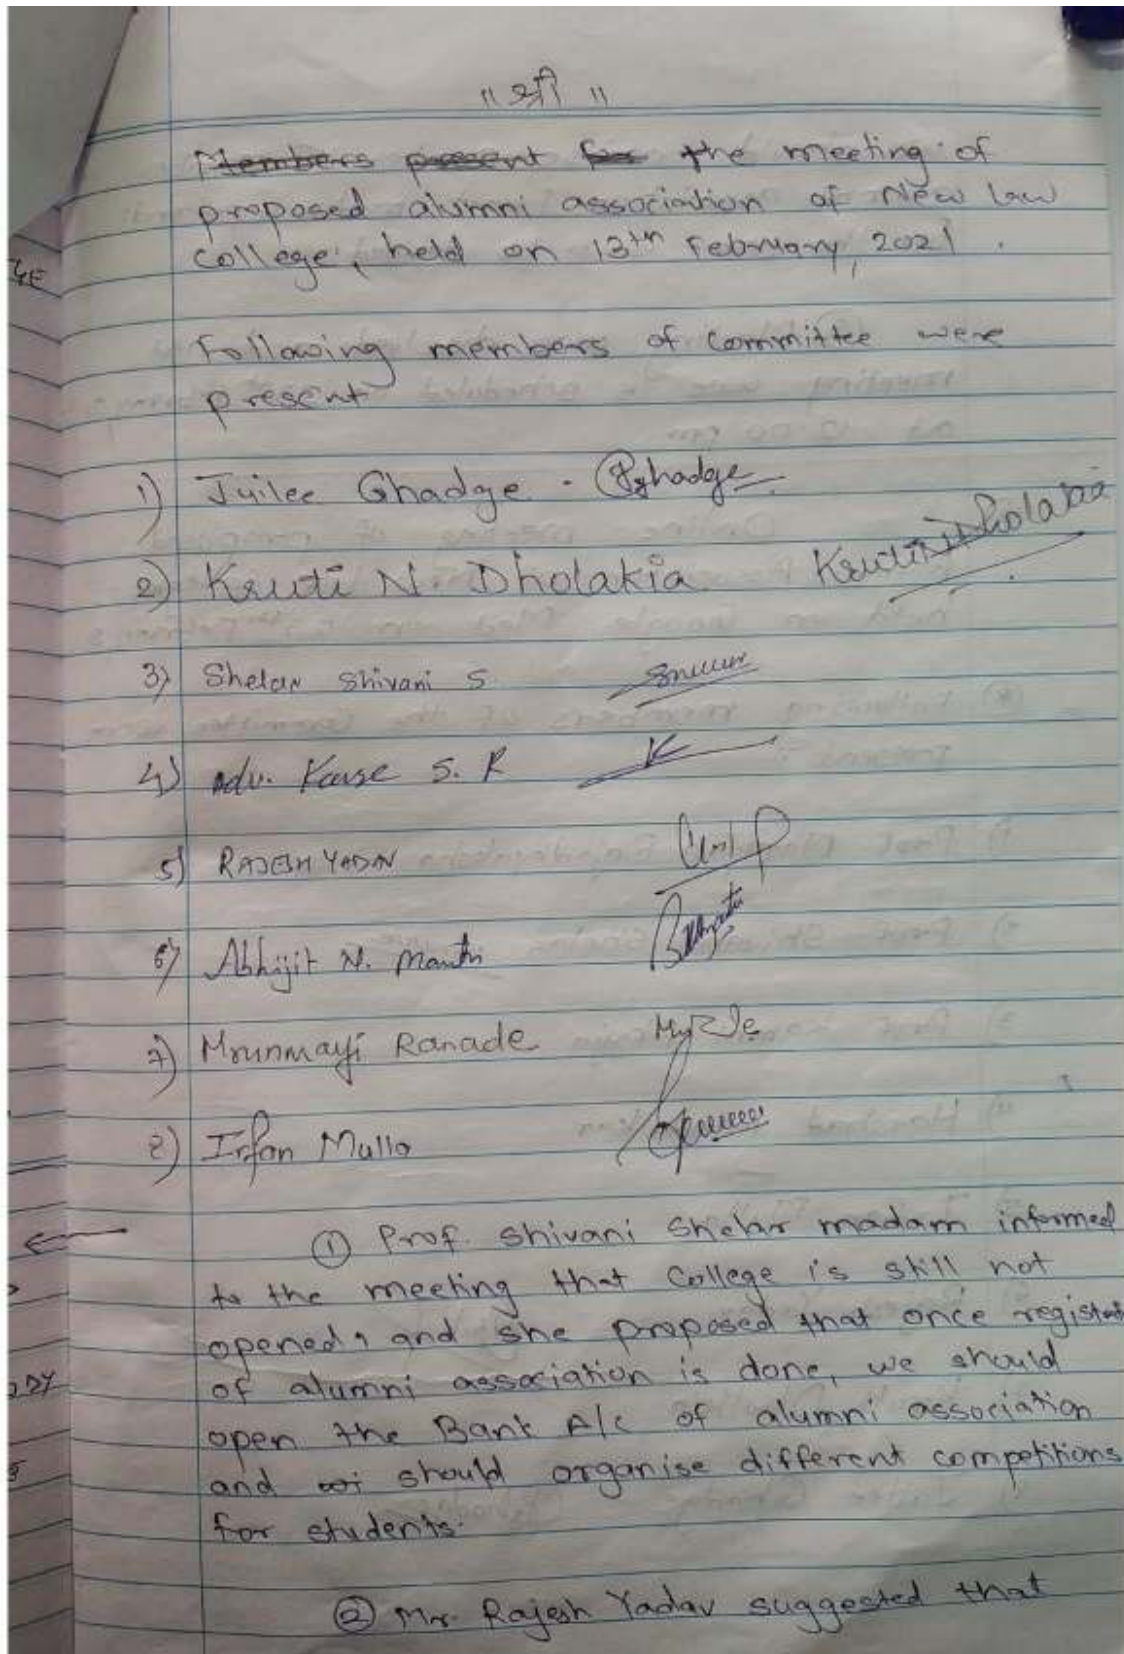 ॥ श्री ॥
Members present for the meeting of
proposed alumni association of New Law
College, held on 13th February, 2021.
Following members of Committee were
present
1) Juilee Ghadge - Ghadge
2) Kruti N. Dholakia Kruti N Dholakia
3) Shelar Shivani S
4) Adv. Karse S. R
5) RAJESH YADAV
6) Abhijit N.
7) Mrunmayi Ranade
8) Irfan Mulla
① Prof. Shivani Shelar madam informed
to the meeting that College is still not
opened, and she proposed that once registrat
of alumni association is done, we should
open the Bank A/c of alumni association
and should organise different competitions
for students.
② Mr. Rajesh Yadav suggested that